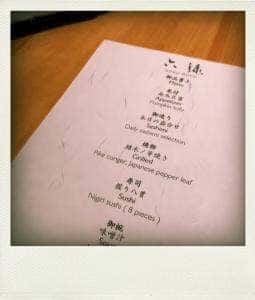 六緑
御品書き
Menu
先付
Appetizer
Pumpkin tofu
御造り
本日の盛合せ
Sashimi
Daily sashimi selection
焼物
Grilled
Pike conger, Japanese pepper leaf
寿司
握り八貫
Sushi
Nigiri sushi ( 8 pieces )
御椀
味噌汁